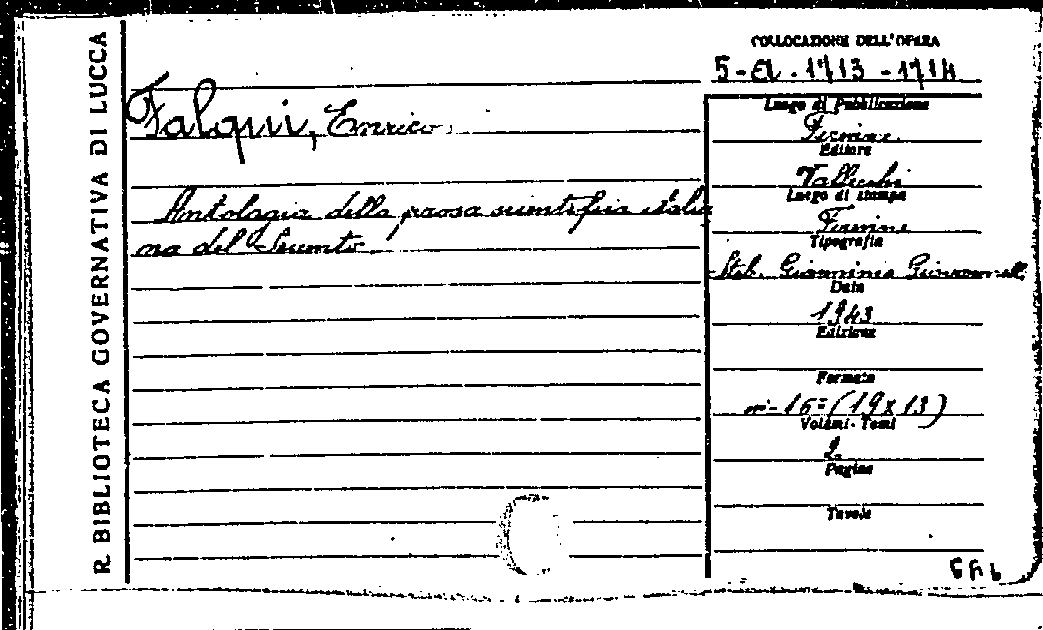 R. BIBLIOTECA GOVERNATIVA DI LUCCA
COLLOCAZIONE DELL'OPERA
5-EI.1713-1714
Falqui, Enrico
Antologia della prosa scientifica italia
na del Seicento
Luogo di Pubblicazione
Firenze
Editore
Vallecchi
Luogo di stampa
Firenze
Tipografia
Stab.
Data
1943
Edizione
Formato
in-16° (19x13)
Volumi-Tomi
2
Pagine
Tavole